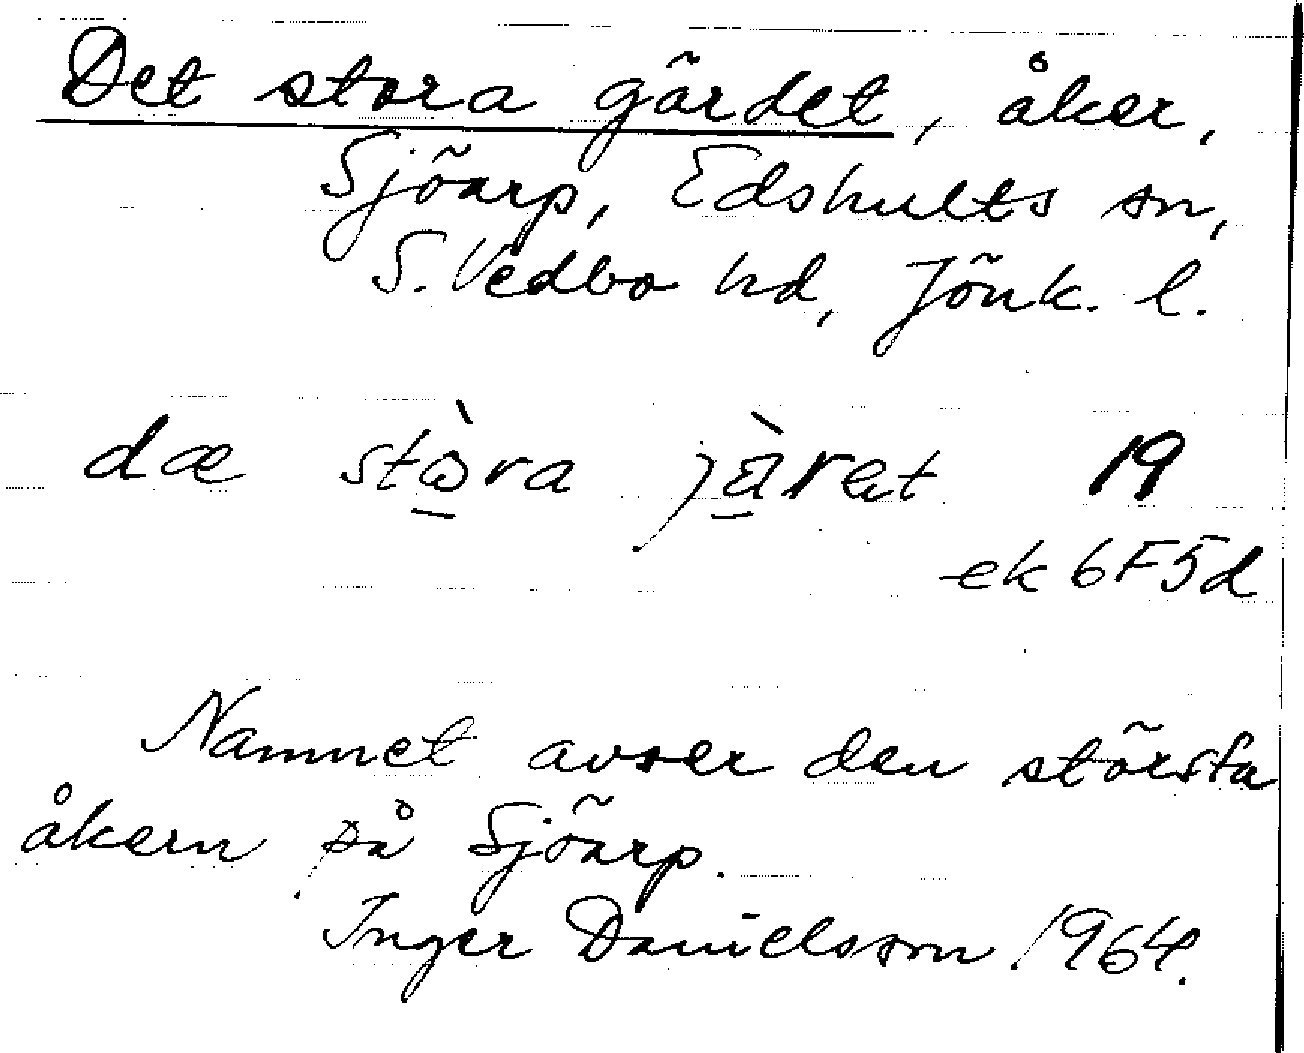 Det stora gärdet, åker,
Sjöarp, Edshults sn,
S. Vedbo hd, Jönk. l.
dæ stὼra jä̀ret 19
ek 6F5d
Namnet avser den största
åkern på Sjöarp.
Inger Danielsson 1964.